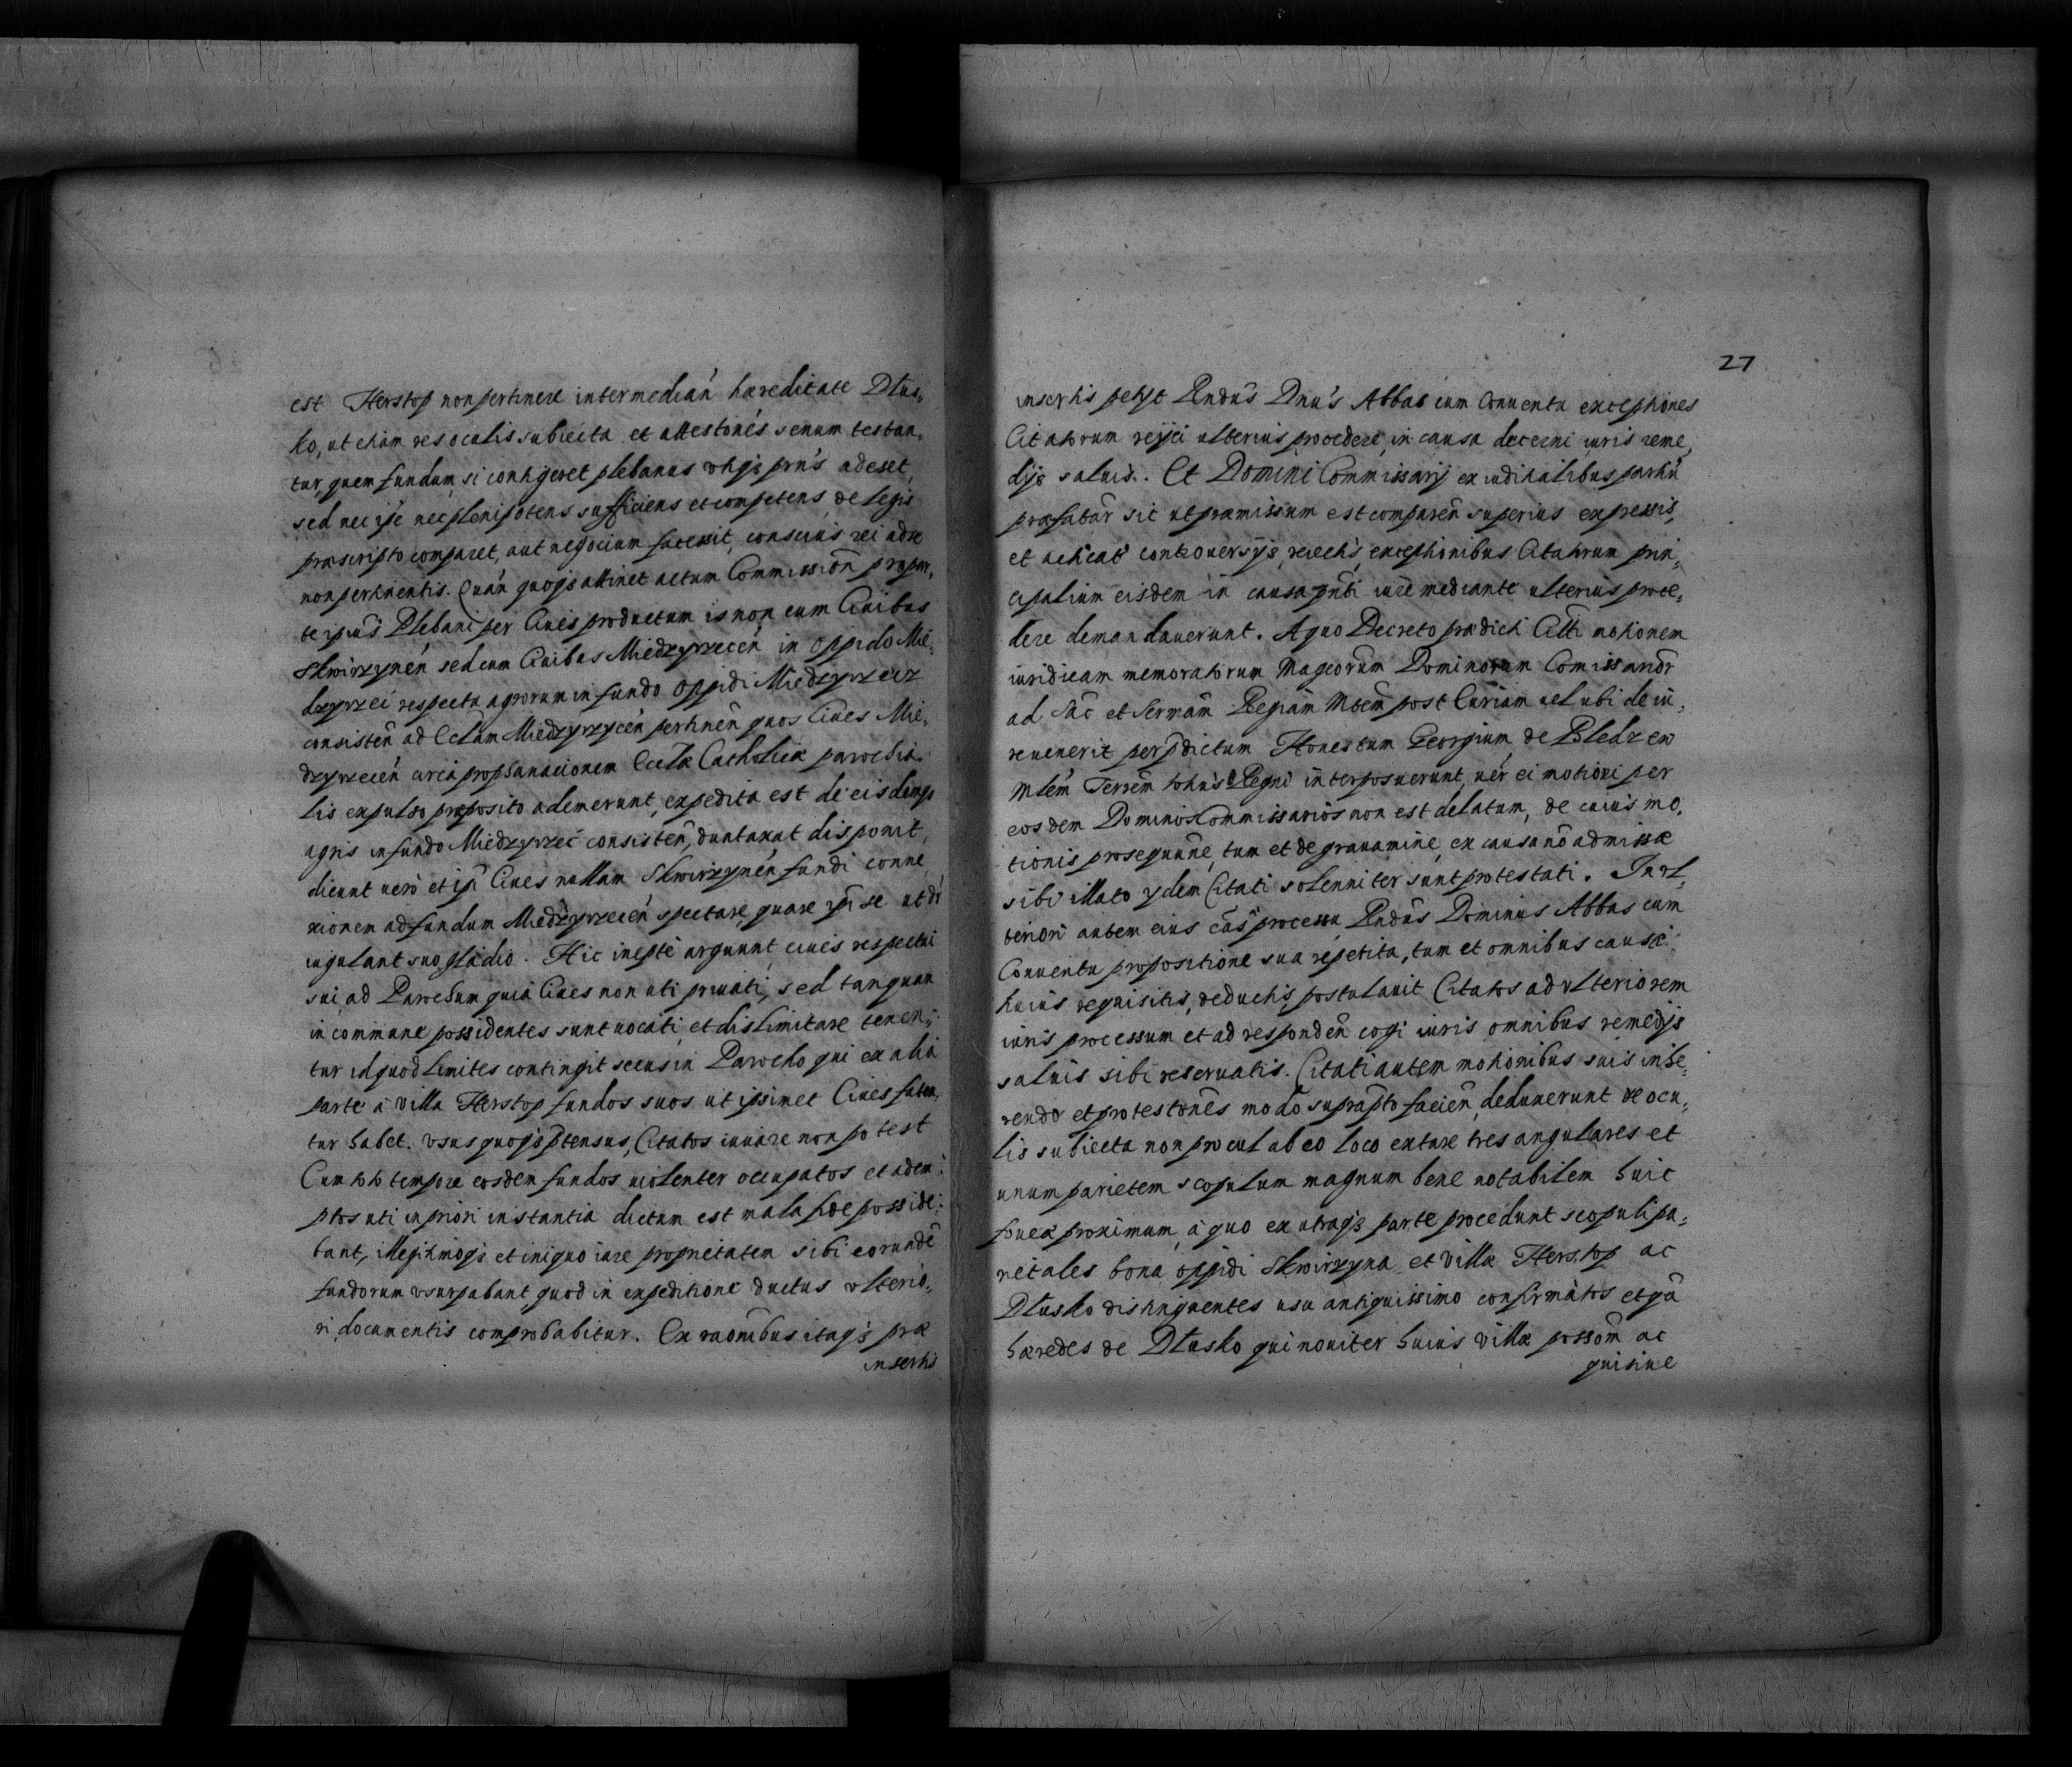 est Herstop non pertinere intermedian̄ hæreditate Dłus„
ko, ut etiam res oculis subiecta et attestones senum testan„
tur, quem fundum si contigeret plebanus vtiq3 pnś adeset,
sed nec ipe nec plenipotens sufficiens et competens, de legis
præscripto comparet, aut negocium facessit, conscius rei ad se
non pertinentis. Quan̄ quoq3 attinet actum Commission̄ præpar„
te ipiuś Plebani per Ciues productum is non cum Ciuibus
Skwirzynen̄ sed cum Ciuibus Miedzyrzecen̄ in Oppido Mie„
dzyrzeci respectu agrorum in fundo Oppidi Miedzyrzecz
consisten̄ ad Eccl̄am Miedzyrzycen̄ pertinen̄ quos Ciues Mie„
dzyrzecen̄ circa prophanacionem Eccl̄æ Catholicæ parochia„
lis expulso præposito ademerunt, expedita est de eisdemq3
agris in fundo Miedzyrzec̄ consisten̄, duntaxat disponit,
dicunt uero et ip̄i Ciues nullam Skwirzynen̄ fundi conne„
xionem ad fundum Miedzyrzecen̄ spectare, quare ip̄i se ut dr̄
iugulant suo gladio. Hic inepte arguunt, ciues respectui
sui ad Parochum quia Ciues non uti priuati, sed tanquam
in commune possidentes sunt uocati, et dislimitare tenen„
tur id quod limites contingit secus in Parocho qui ex alia
parte a villa Herstop fundos suos ut ipsimet Ciues faten„
tur habet. vsus quoq3 p̄tensus, Citatos iuuare non potest
Cum toto tempore eosdem fundos uiolenter occupatos et adem„
ptos uti in priori instantia dictum est mala fide posside„
bant, illegitimoq3 et iniquo iure proprietatem sibi eorunde
fundorum vsurpabant, quod in expeditione ductus vlterio„
ri documentis comprobabitur. Ex raōnibus itaq3 præ
insertis
27
insertis petyt R̄ndus Dnus Abbas cum Conuentu exceptiones
Citatorum reijci ulterius procedere, in causa decerni iuris reme„
dijs saluis. Et Domini Commissarij ex iuditialibus partiū
præfatar̄ sic ut præmissum est comparen̄ superius expressis,
et acticat̄ controuersijs, reiectis, exceptionibus Citatorum prin„
cipalium eisdem in causa pn̄ti iure mediante ulterius proce„
dere demandauerunt. A quo Decreto prædicti Citti motionem
iuridicam memoratorum Magcorum Dominorum Comissarior̄
ad Sac̄ et Sermam Regiam Mtem post Curiam uel ubi de iu„
re uenerit per p̄dictum Honestum Georgium de Bledzew
Mlem̄ Terrem̄ totius Regni interposuerunt, uer̄ ei motioni per
eosdem Dominos Commissarios non est delatum, de cuius mo„
tionis prosequn̄ne, tum et de grauamine, ex causa nō admissæ
sibi illato ydem Citati solenniter sunt protestati. In vl„
teriori autem eius cās̄ processu, R̄ndus Dominus Abbas cum
Conuentu propositione sua repetita, tum et omnibus causæ
huius requisitis, deductis, postulauit Citatos ad vlteriorem
iuris processum et ad responden̄ cogi iuris omnibus remedijs
saluis sibi reseruatis. Citati autem motionibus suis inhe„
rendo et protestones modo suprap̄to facien̄, deduxerunt de ocu„
lis subiecta non procul ab eo loco extare tres angulares et
unum parietem scopulum magnum bene notabilem huic
foueæ proximum, a quo ex utraq3 parte procedunt scopuli pa„
rietales bona oppidi Skwirzyna et villæ Herstop ac
Dłusko distinguentes usu antiquissimo confirmatos et p̄a
hæredes de Dłusko qui nouiter huius villæ possom̄ ac
quisiue